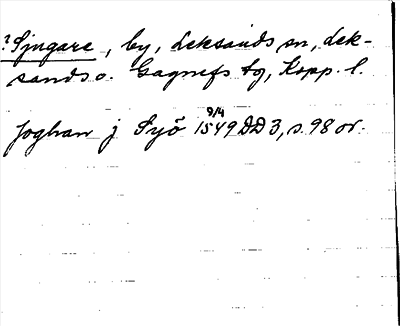 ? Sjugare, by, Leksands sn, Lek-
sands o. Gagnefs tg, Kopp. l.
9/4
Joghan j Syö 1549 DD 3, s. 98 or.